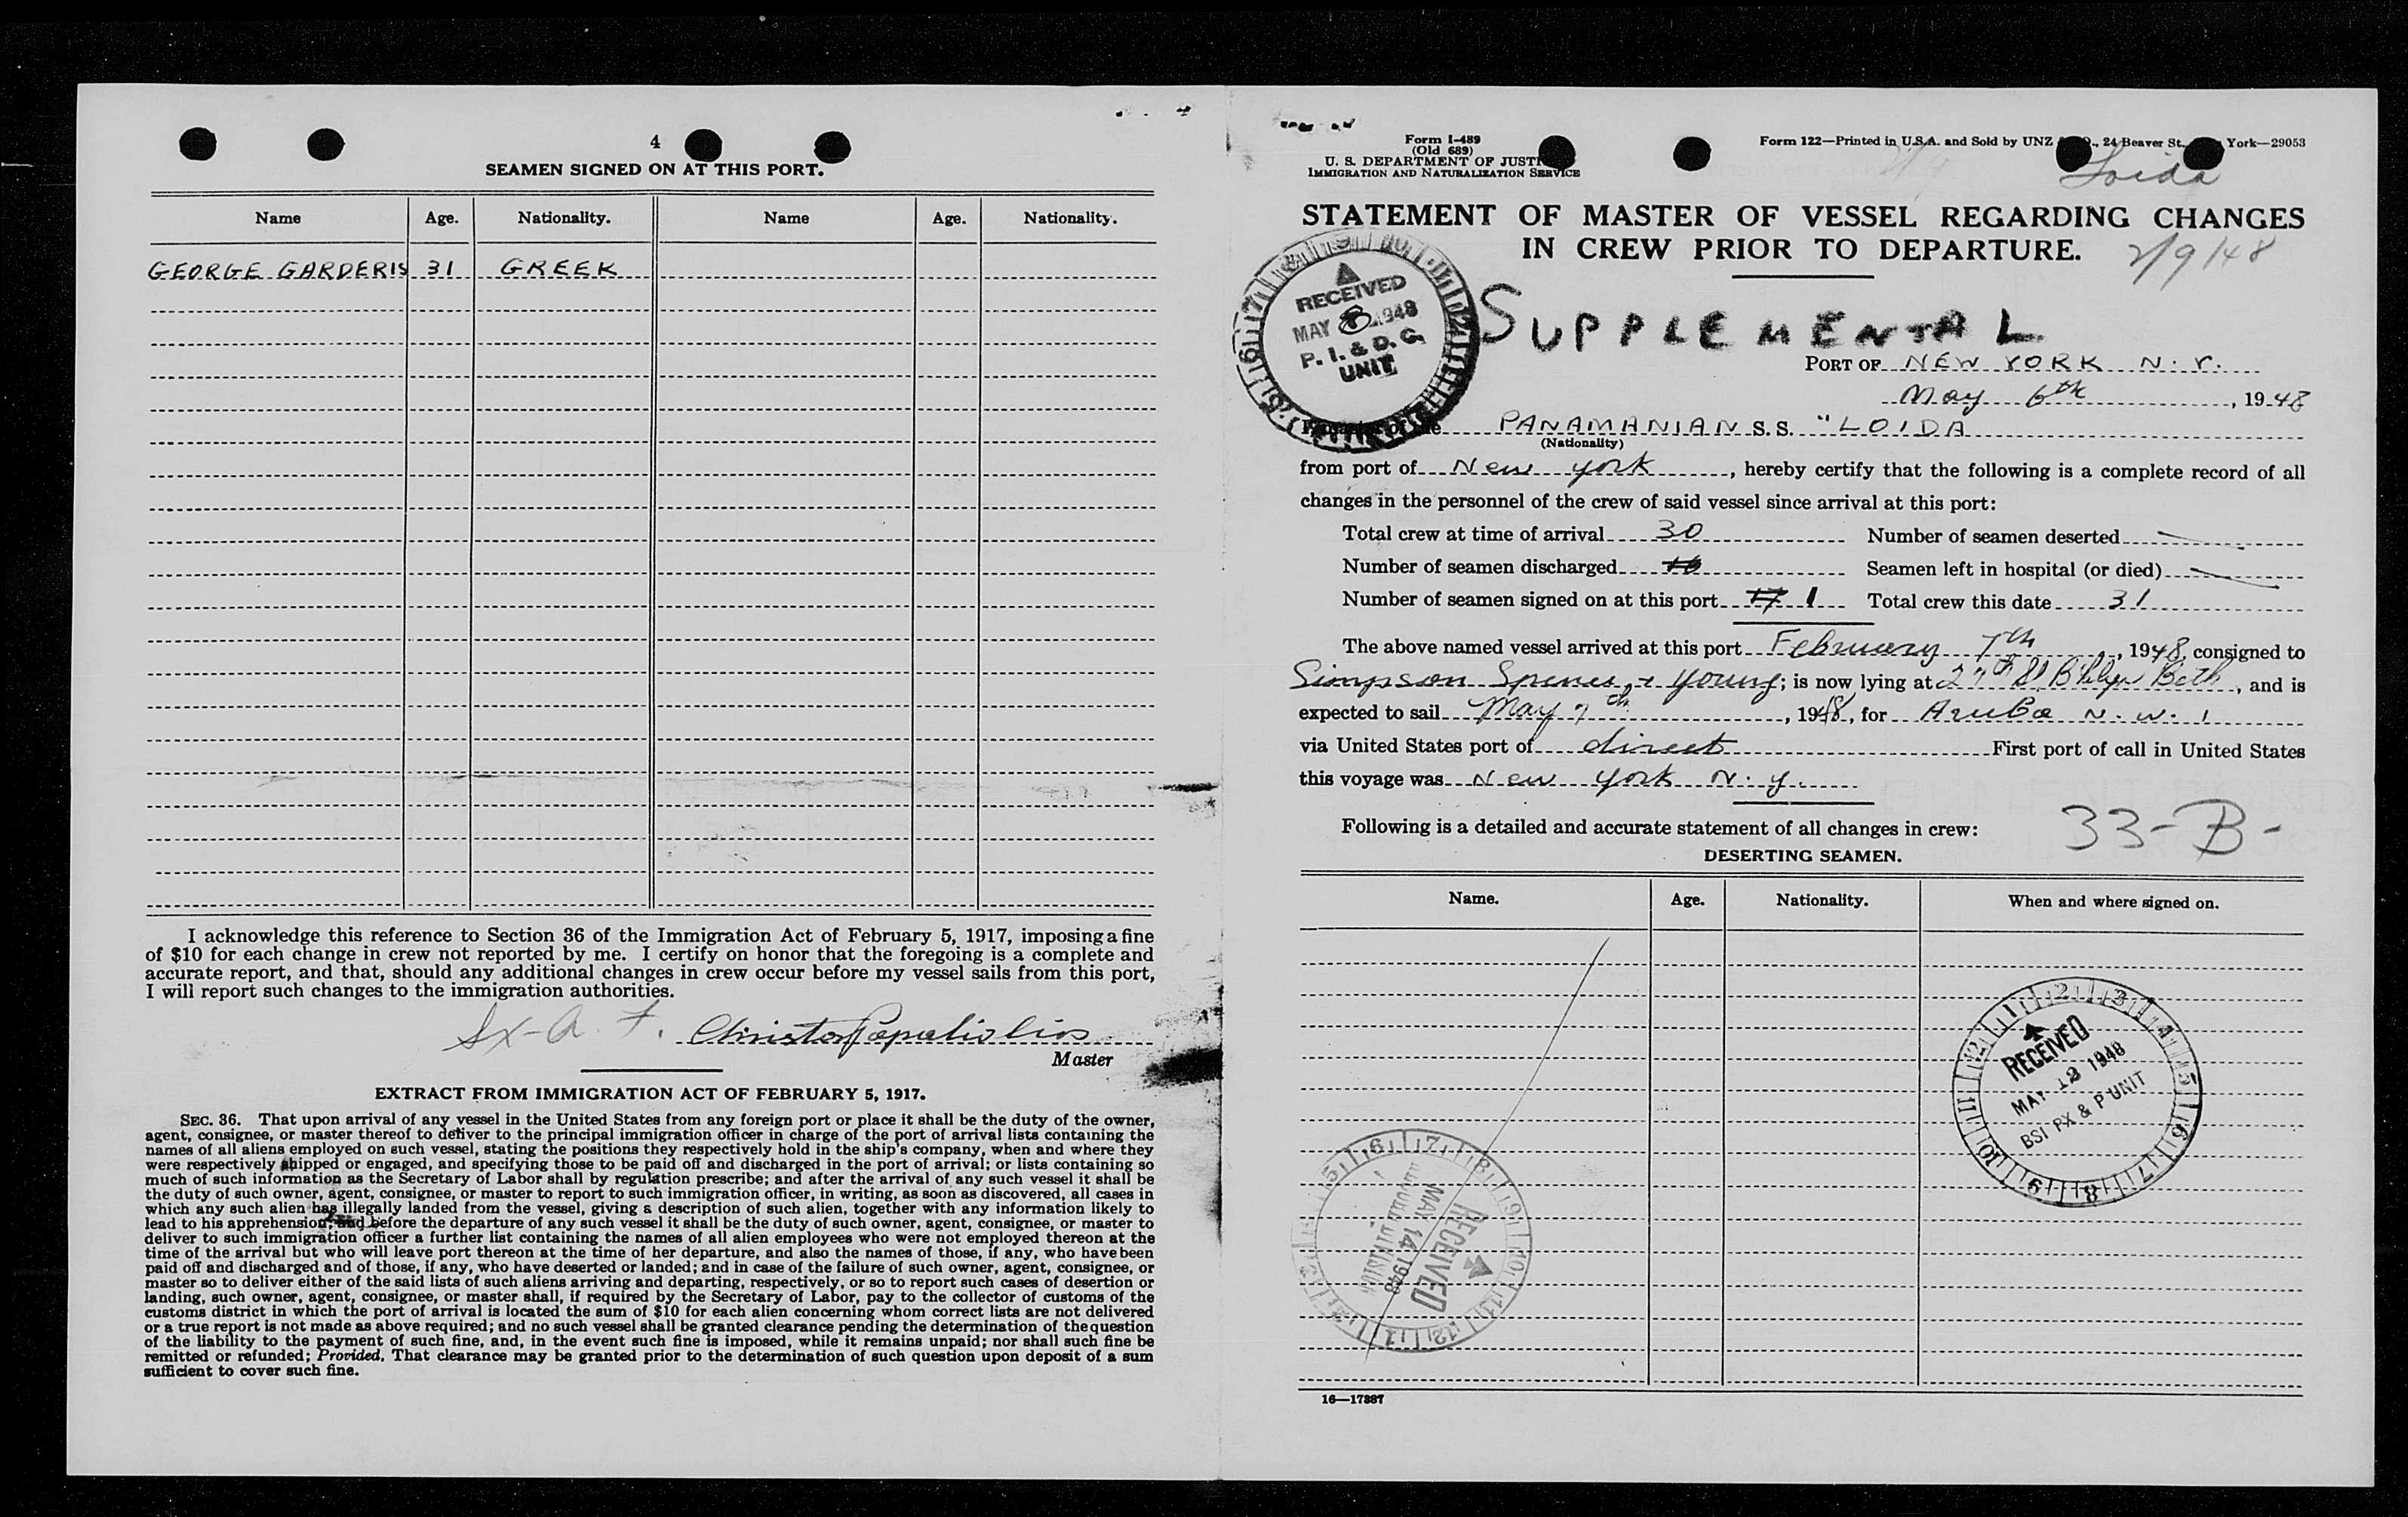 4
SEAMEN SIGNED ON AT THIS PORT.
Name Age. Nationality. Name Age. Nationality.
GEORGE GARDERIS 31 GREEK
I acknowledge this reference to Section 36 of the Immigration Act of February 5, 1917, imposing a fine
of $10 for each change in crew not reported by me. I certify on honor that the foregoing is a complete and
accurate report, and that, should any additional changes in crew occur before my vessel sails from this port,
I will report such changes to the immigration authorities.
Master
EXTRACT FROM IMMIGRATION ACT OF FEBRUARY 5, 1917.
SEC. 36. That upon arrival of any vessel in the United States from any foreign port or place it shall be the duty of the owner,
agent, consignee, or master thereof to deliver to the principal immigration officer in charge of the port of arrival lists containing the
names of all aliens employed on such vessel, stating the positions they respectively hold in the ship's company, when and where they
were respectively shipped or engaged, and specifying those to be paid off and discharged in the port of arrival; or lists containing so
much of such information as the Secretary of Labor shall by regulation prescribe; and after the arrival of any such vessel it shall be
the duty of such owner, agent, consignee, or master to report to such immigration officer, in writing, as soon as discovered, all cases in
which any such alien has illegally landed from the vessel, giving a description of such alien, together with any information likely to
lead to his apprehension; and before the departure of any such vessel it shall be the duty of such owner, agent, consignee, or master to
deliver to such immigration officer a further list containing the names of all alien employees who were not employed thereon at the
time of the arrival but who will leave port thereon at the time of her departure, and also the names of those, if any, who have been
paid off and discharged and of those, if any, who have deserted or landed; and in case of the failure of such owner, agent, consignee, or
master so to deliver either of the said lists of such aliens arriving and departing, respectively, or so to report such cases of desertion or
landing, such owner, agent, consignee, or master shall, if required by the Secretary of Labor, pay to the collector of customs of the
customs district in which the port of arrival is located the sum of $10 for each alien concerning whom correct lists are not delivered
or a true report is not made as above required; and no such vessel shall be granted clearance pending the determination of the question
of the liability to the payment of such fine, and, in the event such fine is imposed, while it remains unpaid; nor shall such fine be
remitted or refunded; Provided, That clearance may be granted prior to the determination of such question upon deposit of a sum
sufficient to cover such fine.
Form I-489
(Old 689)
U. S. DEPARTMENT OF JUSTICE
IMMIGRATION AND NATURALIZATION SERVICE
Form 122—Printed in U.S.A. and Sold by UNZ 24 Beaver St. York—29053
Loida
STATEMENT OF MASTER OF VESSEL REGARDING CHANGES
IN CREW PRIOR TO DEPARTURE.
2/9/48
RECEIVED
MAY 1948
P. I. & D. C.
UNIT
SUPPLEMENTAL
PORT OF NEW YORK N.Y.
May 6th, 1948
PANAMANIAN S.S. "LOIDA
(Nationality)
from port of New York, hereby certify that the following is a complete record of all
changes in the personnel of the crew of said vessel since arrival at this port:
Total crew at time of arrival 30 Number of seamen deserted
Number of seamen discharged 16 Seamen left in hospital (or died)
Number of seamen signed on at this port 17 1 Total crew this date 31
The above named vessel arrived at this port February 7th, 1948, consigned to
Simpson Spence & Young; is now lying at 27th St, and is
expected to sail May 7th, 1948, for Aruba N.W.I
via United States port of direct First port of call in United States
this voyage was New York N.Y.
Following is a detailed and accurate statement of all changes in crew:
33-B-
DESERTING SEAMEN.
Name. Age. Nationality. When and where signed on.
RECEIVED
MAY 12 1948
BSI PX & P UNIT
RECEIVED
MAY 14 1948
16—17887